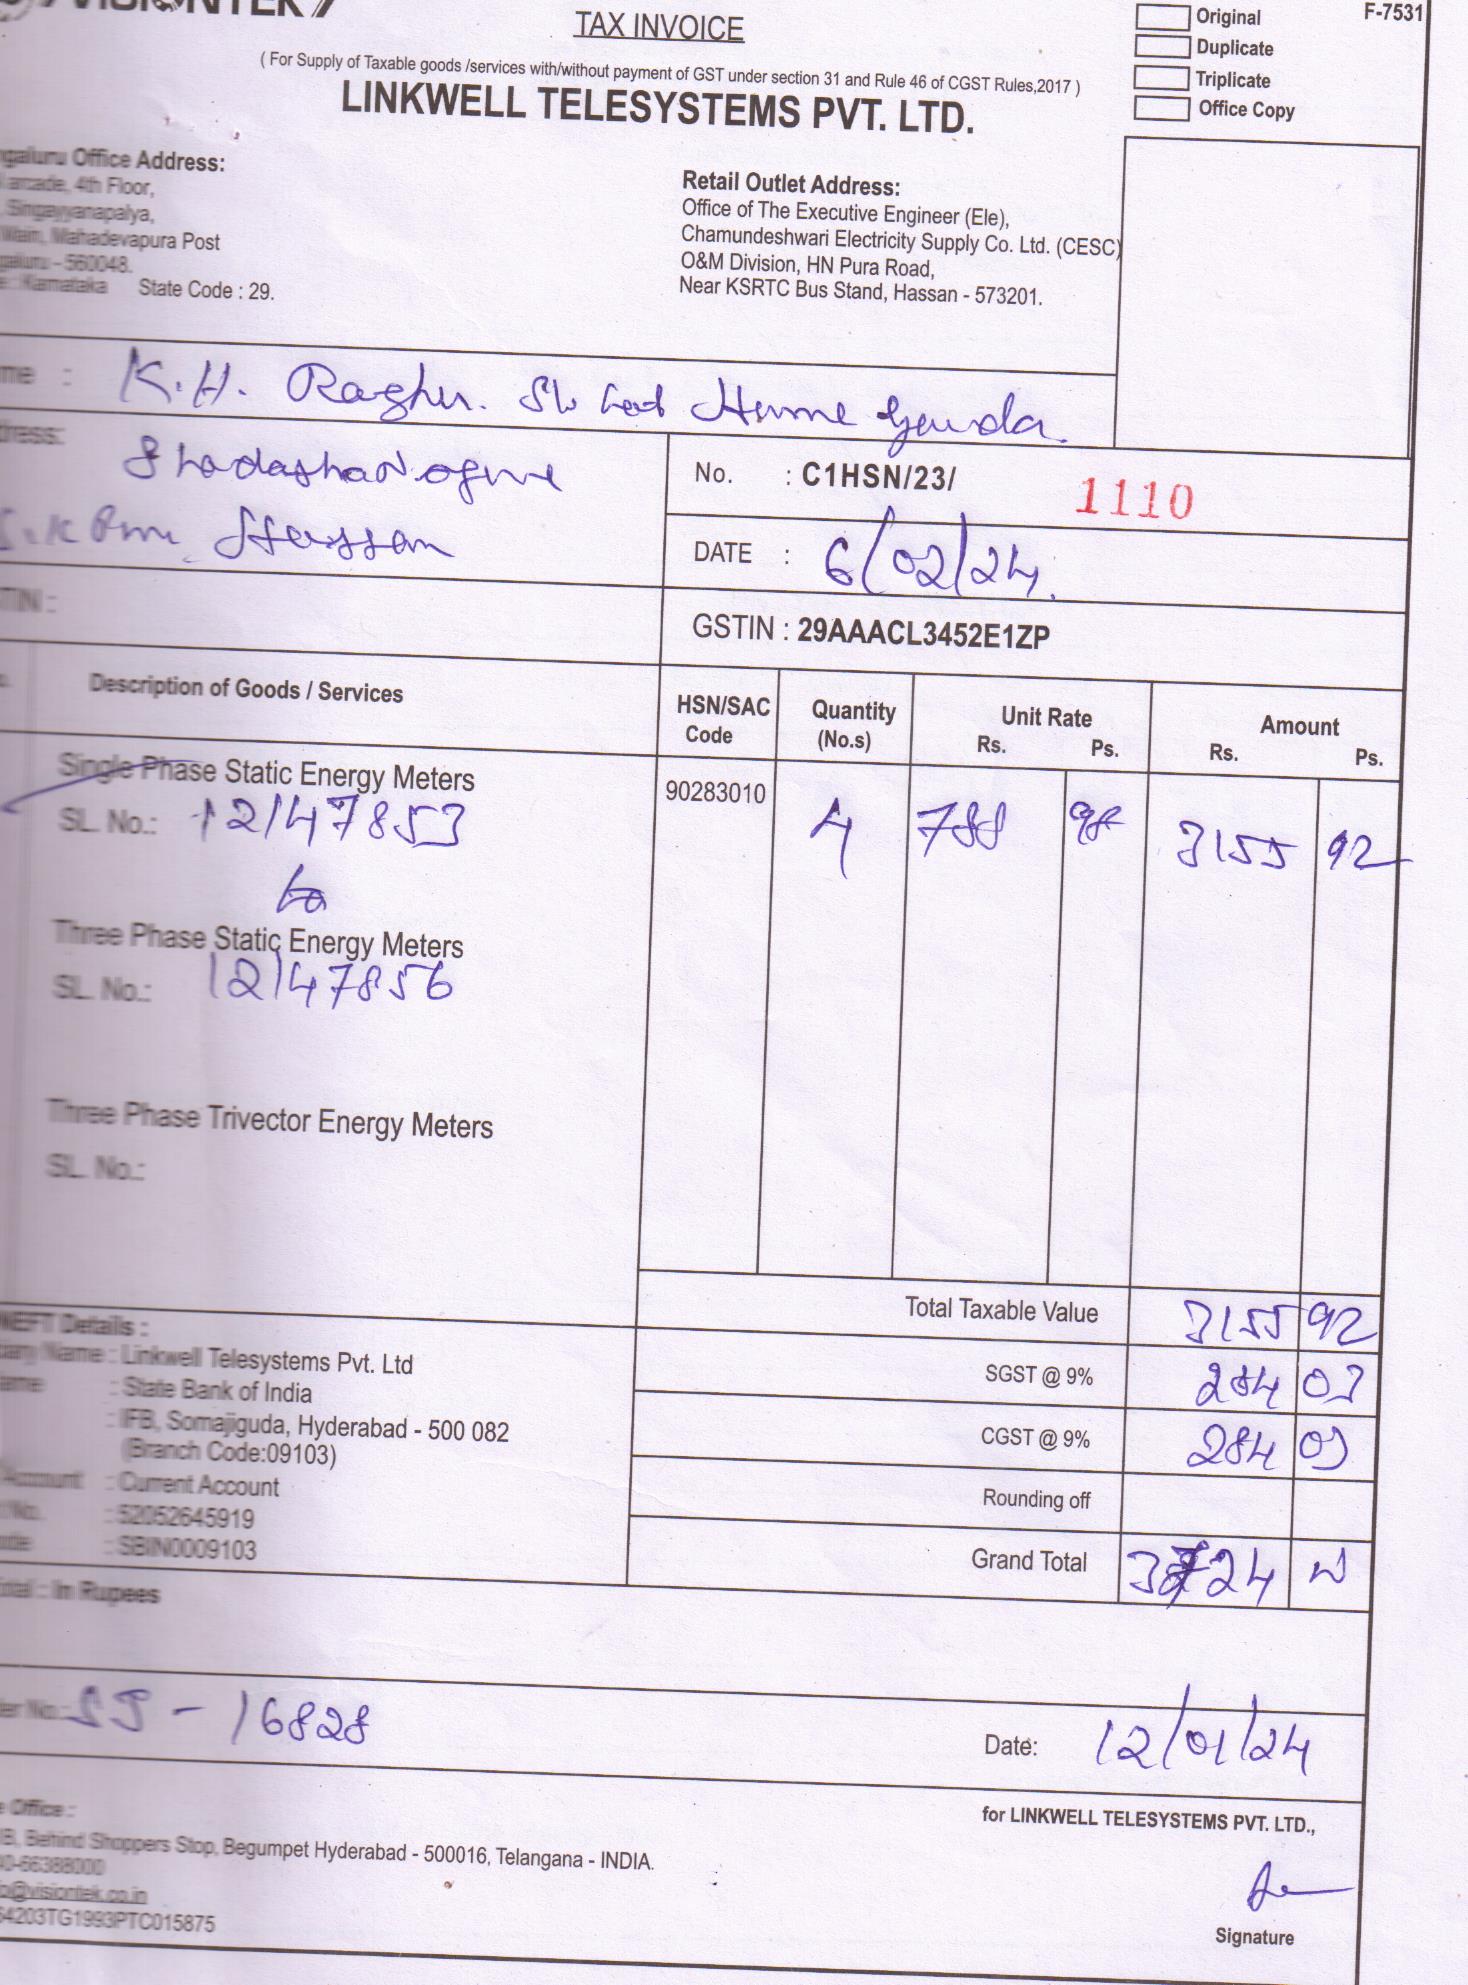 VISIONTEK
TAX INVOICE
F-7531
Original
Duplicate
Triplicate
Office Copy
( For Supply of Taxable goods /services with/without payment of GST under section 31 and Rule 46 of CGST Rules,2017 )
LINKWELL TELESYSTEMS PVT. LTD.
Office Address:
arcade, 4th Floor,
Singayyanapalya,
Main, Mahadevapura Post
- 560048.
Karnataka State Code : 29.
Retail Outlet Address:
Office of The Executive Engineer (Ele),
Chamundeshwari Electricity Supply Co. Ltd. (CESC)
O&M Division, HN Pura Road,
Near KSRTC Bus Stand, Hassan - 573201.
: K.H. Raghu. S/o Gowda.
Hassan
No. : C1HSN/23/ 1110
DATE : 6/02/24.
GSTIN : 29AAACL3452E1ZP
Description of Goods / Services
HSN/SAC Code
Quantity (No.s)
Unit Rate Rs. Ps.
Amount Rs. Ps.
Single Phase Static Energy Meters 90283010 4 788 98 3155 92
SL. No.: 12147853
to
Three Phase Static Energy Meters
SL. No.: 12147856
Three Phase Trivector Energy Meters
SL. No.:
Total Taxable Value 3155 92
SGST @ 9% 284 03
CGST @ 9% 284 03
Rounding off
Grand Total 3724
NEFT Details :
Name : Linkwell Telesystems Pvt. Ltd
: State Bank of India
: IFB, Somajiguda, Hyderabad - 500 082
(Branch Code:09103)
Account : Current Account
No. : 52052645919
: SBIN0009103
: In Rupees
No.: SJ - 16828
Date: 12/01/24
Office :
Behind Shoppers Stop, Begumpet Hyderabad - 500016, Telangana - INDIA.
-66388000
@visiontek.co.in
64203TG1993PTC015875
for LINKWELL TELESYSTEMS PVT. LTD.,
Signature